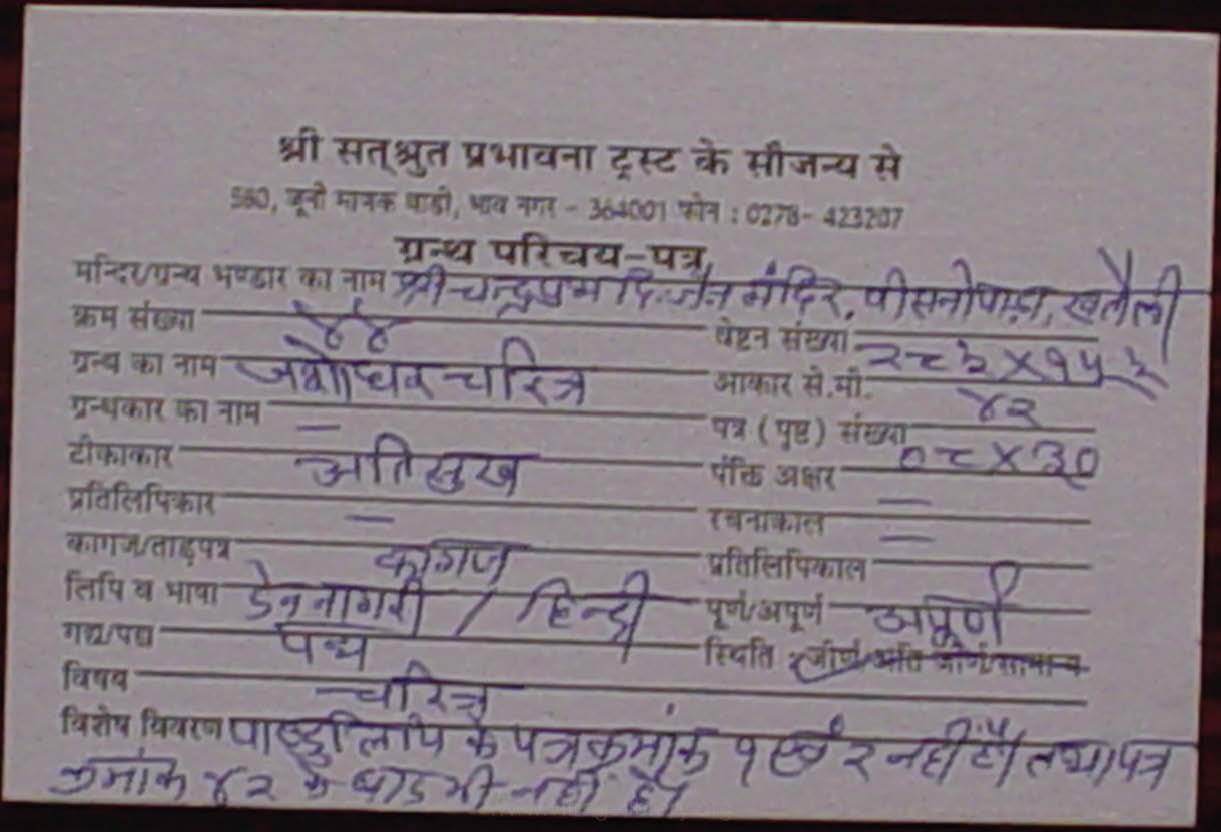 श्री सत्श्रुत प्रभावना ट्रस्ट के सौजन्य से
580, जूनी माणेक वाडी, भाव नगर - 364001 फोन : 0278- 423207
ग्रन्थ परिचय-पत्र
मन्दिर/ग्रन्थ भण्डार का नाम श्री चन्द्रप्रभ दि. जैन मंदिर, पीसनोपाड़ा, खतौली
क्रम संख्या ४४ वेष्टन संख्या
ग्रन्थ का नाम जशोधर चरित्र आकार से.मी. २८.३ X १५.३
ग्रन्थकार का नाम — पत्र (पृष्ट) संख्या ४२
टीकाकार अतिसुख पंक्ति अक्षर ०८ X ३०
प्रतिलिपिकार — रचनाकाल —
कागज/ताड़पत्र कागज प्रतिलिपिकाल —
लिपि व भाषा देवनागरी / हिन्दी पूर्ण/अपूर्ण अपूर्ण
गद्य/पद्य पद्य स्थिति जीर्ण/अति जीर्ण/सामान्य
विषय चरित्र
विशेष विवरण पाण्डुलिपि के पत्र क्रमांक १ एवं २ नहीं है। तथा पत्र
क्रमांक ४२ के बाद भी नहीं है।